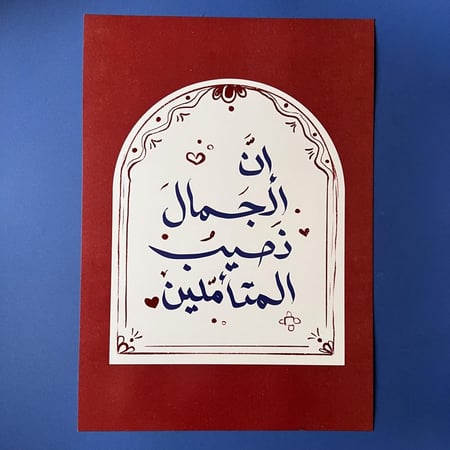 إنَّ
الجمالَ
نَصيبُ
المتأمّلين